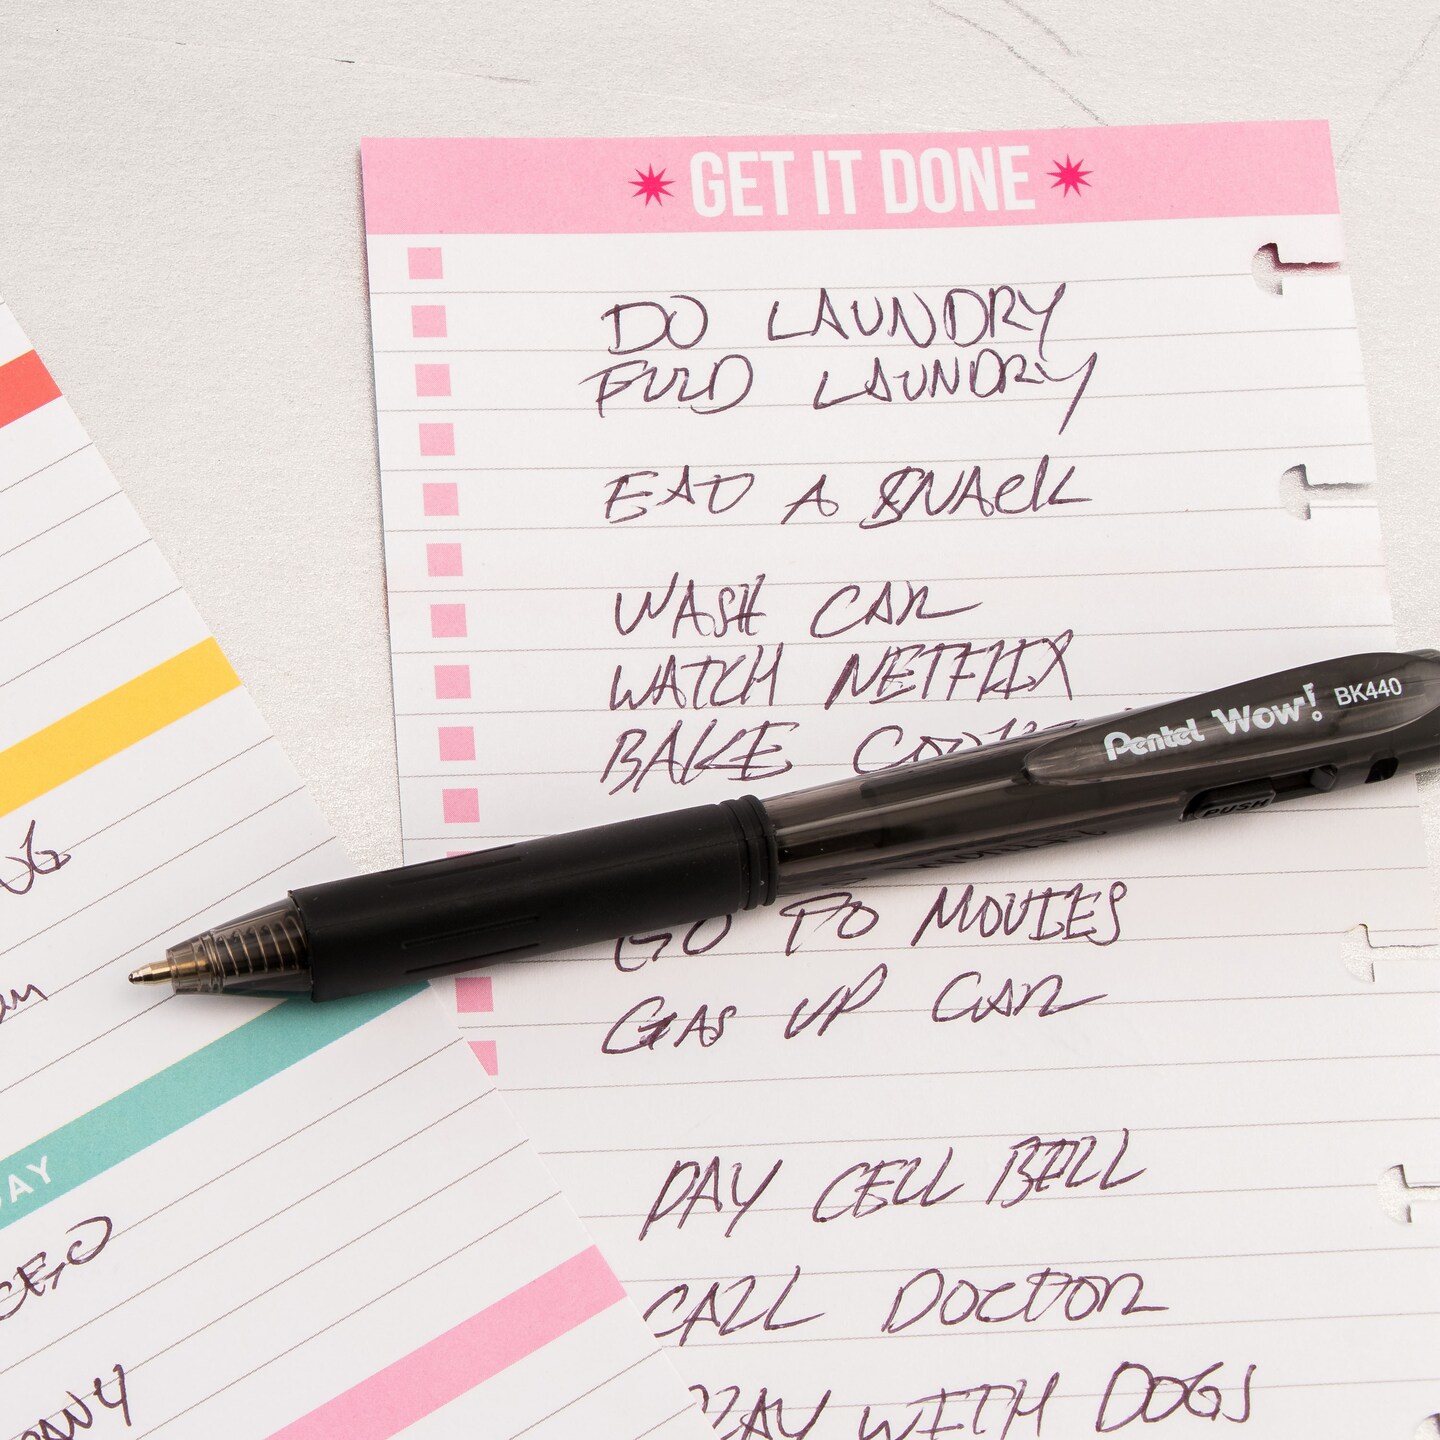 GET IT DONE
DO LAUNDRY
FOLD LAUNDRY
EAT A SNACK
WASH CAR
WATCH NETFLIX
BAKE
Pentel Wow! BK440
PUSH
GO TO MOVIES
GAS UP CAR
PAY CELL BILL
CALL DOCTOR
WITH DOGS
AY
CEO